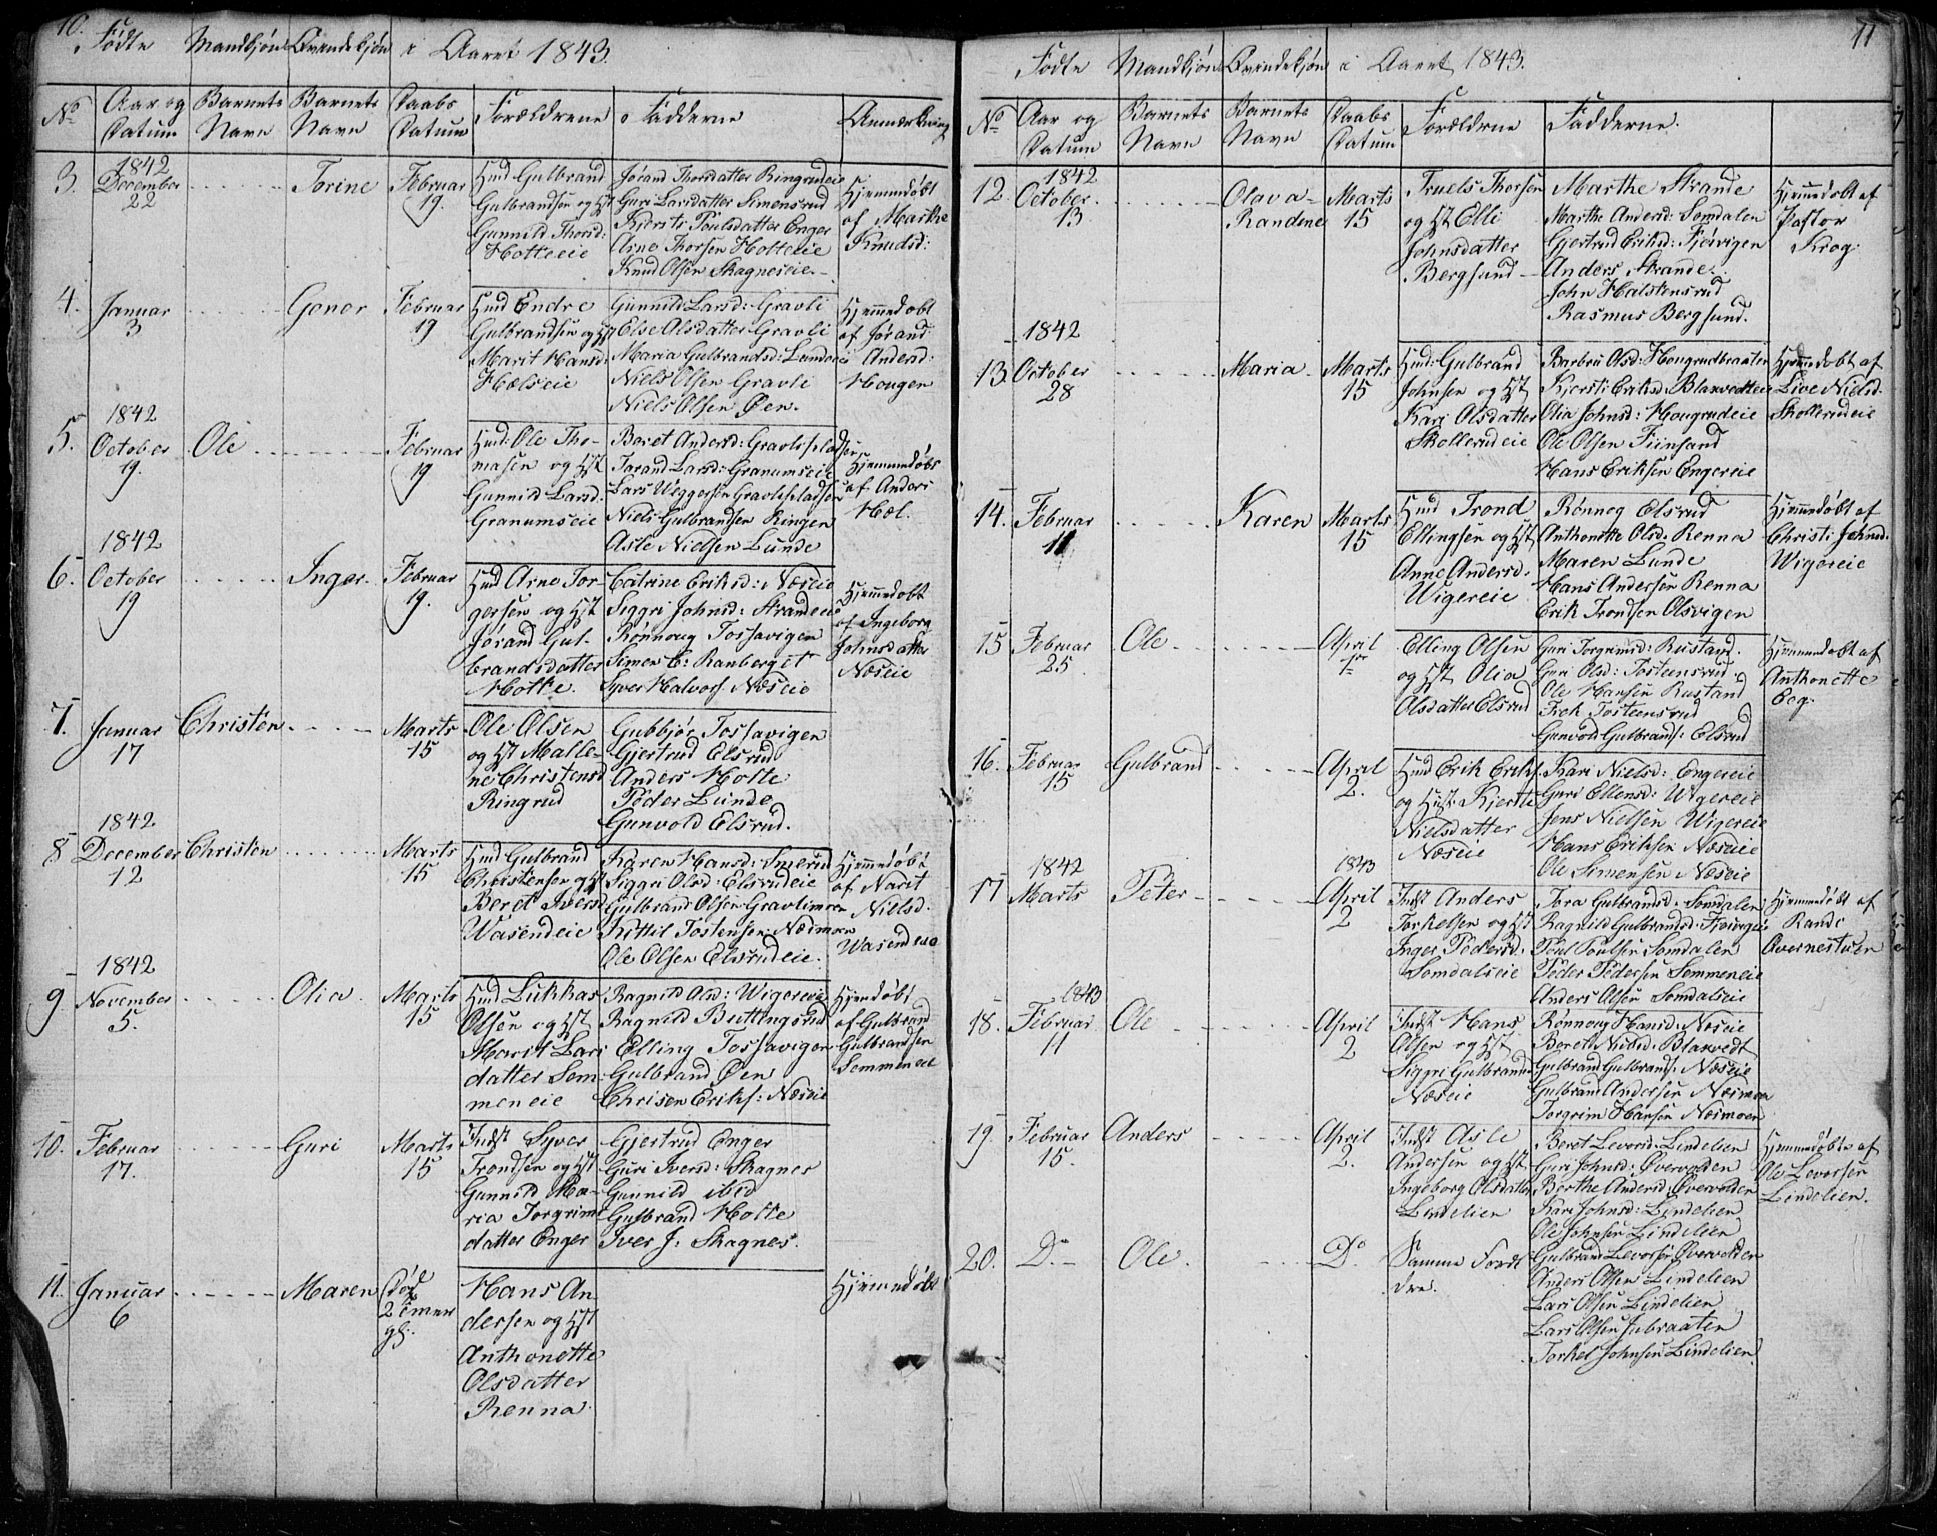 10.
Födte Mandkjön Qvindekjön i Aaret 1843.
No Aar og Datum Barnets Navn Barnets Navn Daabs Datum Forældrene Fadderne Anmærkning
3. 1842 December 22 Torine Februar 19.
Hmd Gulbrand
Gulbrandsen og Hst
Gunnild Thorsd:
Hotteeie
Jørand Thorsdatter Ringrudeie
Guri Larsdatter Simensrud
Kjersti Poulsdatter Enger
Arne Thorsen Hotteeie
Knud Olsen Skagneseie
Hjemmedøbt
af Marthe
Knudsd:
4. Januar 3 Gonor Februar 19
Hmd Endre
Gulbrandsen og Hst
Marit Hansd:
Hælseie
Gunnild Larsd: Gravli
Else Alsdatter Gravli
Maria Gulbrandsd: Lundeeie
Niels Olsen Gravli
Niels Olsen Øen.
Hjemmedøbt
af Jørand
Andersd:
Hougen
5. 1842 October 19. Ole Februar 19
Hmd: Ole Tho-
masen og Hst
Gunnild Larsd.
Granumseie
Beret Andersd: Gravlipladsen
Jorand Larsd: Granumseie
Lars Weggersen Gravlipladsen
Niels Gulbrandsen Ringen
Asle Nielsen Lunde
Hjemmedøbt
af Anders
Hæl.
6. 1842 October 19 Inger. Februar 19.
Hmd Arne Tor-
gersen og Hst
Jørand Gul-
brandsdatter
Hotte.
Catrine Eriksd: Næseie
Siggri Johnsd: Strandeeie
Rønnoug Tossavigen
Simen E: Ranberget
Syver Halvors. Næseie
Hjemmedøbt
af Ingeborg
Johnsdatter
Næseie
7. Januar 17 Christen Marts 15
Ole Olsen
og Hst Malle-
ne Christensd
Ringrud
Gubbjør Tossavigen
Gjertrud Elsrud
Anders Hotte
Peder Lunde
Gunvold Elsrud.
8 1842 December 12 Christen Marts 15
Hmd Gulbrand
Christensen og Hst
Beret Iversd
Wasendeie
Karen Hansd: Smerud
Siggri Olsd: Elsrudeie
Gulbrand Olsen Gravlimoen
Kittil Tostensen Nædmoen
Ole Olsen Elsrudeie.
Hjemmedøbt
af Narit
Nielsd.
Wasendeie
9 1842 November 5. Olia Marts 15
Hmd Lukkas
Olsen og Hst
Marit Lars
datter Som-
meneie
Ragnild Olsd: Wigereie
Ragnild Buttingsrud
Elling Tossavigen
Gulbrand Øen
Chrisen Eriks: Næseie
Hjemdøbt
af Gulbrand
Gulbrandsen
Sommeneie
10. Februar 17. Guri Marts 15
Indst Syver
Trondsen og Hst
Gunnild Ma-
ria Torgrims
datter Enger
Gjertrud Enger
Guri Iversd: Skagnes
Gunnild ibid
Gulbrand Hotte
Iver J: Skagnes.
11. Januar 6 Maren Død 2 Timer gl:
Hans An
dersen og Hst
Anthonette
Olsdatter
Renna
Hjemmedøbt
11
Födte Mandkjön Qvindekjön i Aaret 1843.
No Aar og Datum Barnets Navn Barnets Navn Daabs Datum Forældrne Fadderne.
12. 1842 October 13 Olava Randene Marts 15
Truels Thorsen
og Hst Elli
Johnsdatter
Bergsund
Marthe Strande
Marthe Andersd: Somdalen
Gjertrud Eriksd: Fjørvigen
Anders Strande.
John Halstensrud
Rasmus Bergsund.
Hjemmedøbt af
Pastor
Krog
13. 1842 October 28 Maria Marts 15
Hmd: Gulbrand
Johnsen og Hst
Kari Olsdatter
Skollerudeie
Barbro Olsd: Hougrudbraaten
Kjersti Eriksd: Blaxvedteie
Olia Johnsd: Hougrudeie
Ole Olsen Fiinsand
Hans Eriksen Engereie
Hjemmedøbt af
Live Nielsd.
Skollerudeie
14. Februar 11 Karen Marts 15
Hmd Trond
Ellingsen og Hst
Anne Andersd.
Wigereie
Rønnog Elsrud
Anthonette Olsd. Renna
Maren Lunde
Hans Andersen Renna
Erik Trondsen Olsvigen
Hjemmedøbt af
Christi Johnsd.
Wigereie
15 Februar 25 Ole April 1ste
Elling Olsen
og Hst Olia
Olsdatter Elsrud
Guri Torgrimsd: Rustand.
Guri Olsd: Tosteensrud
Ole Hansen Rustand
Erek Tosteensrud
Gunvold Gulbrands: Elsrud
Hjemmedøbt af
Anthonette
Eeg.
16. Februar 15 Gulbrand April 2.
Hmd Erik Eriks.
og Hust: Kjersti
Nielsdatter
Næseie
Kari Nielsd: Engereie
Guri Ellensd: Wigereie
Jens Nielsen Wigereie
Hans Eriksen Næseie
Ole Simensen Næseie
17 1842 Marts Peter 1843 April 2
Indst Anders
Torkelsen og Hst
Inger Pedersd:
Somdalseie
Tora Gulbrandsd: Somdalen
Ragnild Gulbrandsd:
Poul Poulsen Somdalen
Peder Pedersen Sommeneie
Anders Olsen Somdalseie
Hjemmedøbt af
Randi
Overnestuen
18. 1843 Februar 11 Ole April 2
Indst Hans
Olsen og Hst
Siggri Gulbrandsd
Næseie
Rønnoug Hansd: Næseie
Beret Nielsd: Blaxvedt
Gulbrand Gulbrands: Næseie
Gulbrand Andersen Næsmoen
Torgrim Hansen Næsmoen
19. Februar 15. Anders April 2.
Indst Asle
Andersen og Hst
Ingeborg Olsdatter
Lindelien
Beret Levorsd: Lindelien
Guri Johnsd: Øvervolden
Berthe Andersd: Øvervolden
Kari Johnsd: Lindelien
Ole Johnsen Lindelien
Hjemmedøbte af
Ole Levorsen
Lindelien.
20. Do Ole. Do
Samme Foræl
dre.
Gulbrand Levorsen Øvervolden
Anders Olsen Lindelien
Lars Olsen Lindelien
Lars Olsen Jubraaten
Torkel Johnsen Lindelien